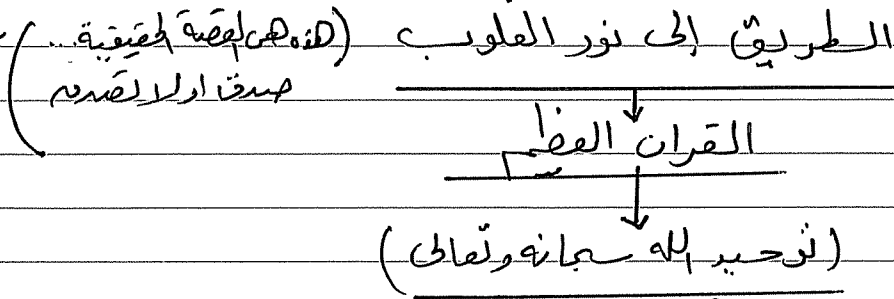 الطريق إلى نور القلوب (هذه هي القصة الحقيقية...
صدق او لا تصدق)
القرآن العظيم
(توحيد الله سبحانه وتعالى)